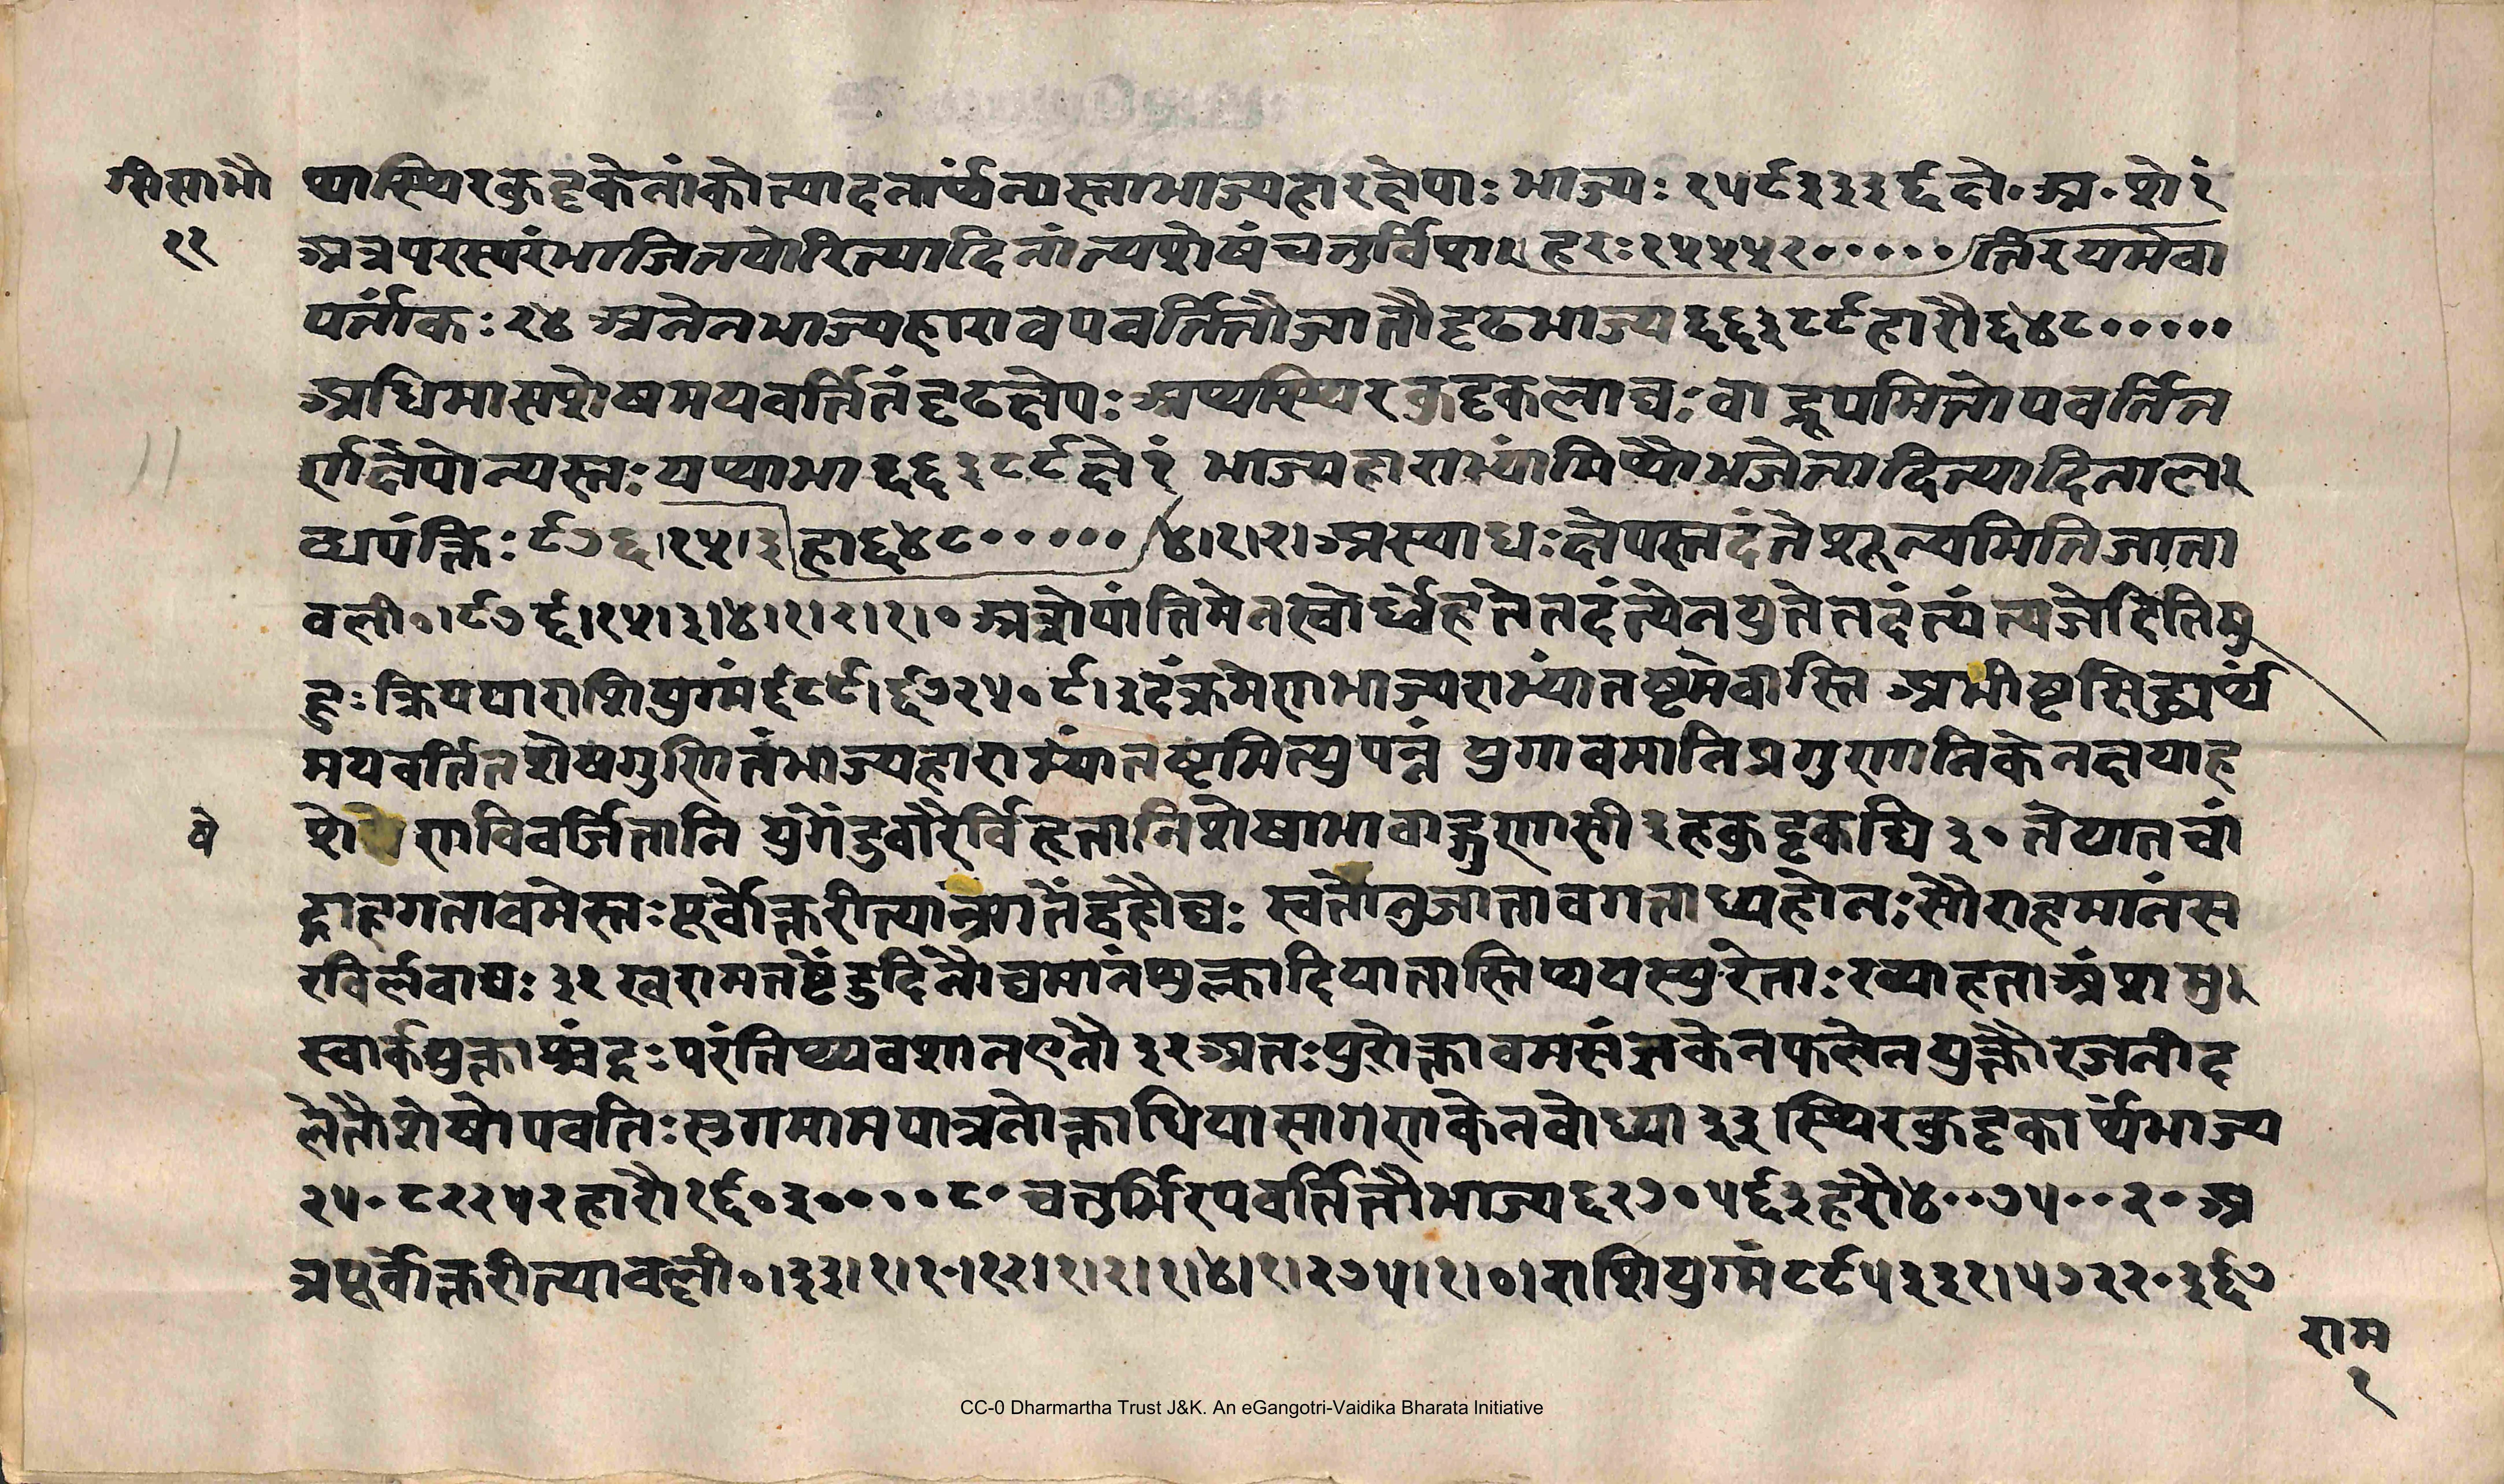 सि सा भौ
११
थास्थिरकुट्टकेनांकोत्पादनार्थंन्यस्ताभाज्यहारक्षेपाः भाज्यः १५९३३३६ क्षे॰ अ॰ शे १
अत्रपरस्परंभाजितयोरित्यादिनांत्यशेषंचतुर्विंशा। हरः १५५५२००००० तिरयमेवा
पर्तांकः २४ अनेनभाज्यहारावपवर्तितौजातौदृढभाज्य ६६३८९ हारौ ६४८०००००
अधिमासशेषमपवर्तितंदृढक्षेपः अप्यस्थिरकुट्टकलाद्यः वा द्रूपमितोपवर्तित
र्णक्षेपोन्यस्तः यथाभा ६६३८९ क्षे १ भाज्यहाराभ्यांमिथोभजेत्तादित्यादिनाल।
ब्धपंक्तिः ९७६।१५।३ हा ६४८००००० ४।१।२। अस्याधःक्षेपस्तदंतेशून्यमितिजाता
वली०।९७६।१५।३।४।१।२।१।० अत्रोपांतिमेनस्वोर्ध्वेहतेतदंत्येनयुतेतदंत्यंत्यजेदितिमु
हुः क्रिययाराशियुग्मं ६८९।६७२५०९। इदंक्रमेणभाज्यराभ्यांतष्टमेवास्ति अभीष्टसिद्ध्यर्थ
मपवर्तितशेषगुणितंभाज्यहाराभ्यांतष्टमित्युपपन्नं युगावमानिप्रगुणानिकेनक्षयाह
शेषेणविवर्जितानि युगेंदुवारैर्विहृतानिशेषाभावाद्गुणासी ३ हकुट्टकाद्यि ३० तैयातचां
षे
द्राहगतावमेस्तः पूर्वोक्तरीत्यात्रगतेंद्वहौघः स्वतोनुजातावगताध्यहोनः सौराहमानंस
रविर्लवाद्यः ३१ खरामतष्टेंदुदिनौघमानंशुक्लादियातास्तिथयस्युरेताः रव्याहताअंशमु।
स्वार्कयुक्ताश्चंद्रः परंतिथ्यवशानएतौ ३२ अतः पुरोक्तावमसंज्ञकेनफलेनयुक्तौरजनीद
लेतौशेषोपवतिः सुगमामपात्रतोक्ताधियासागणकेनबोध्या ३३ स्थिरकुट्टकार्थंभाज्य
२५०८२२५२ हारौ १६०३००००८० चतुर्भिरपवर्तितौभाज्य ६२७०५६३ हरौ ४००७५००२० अ
त्रपूर्वोक्तरीत्यावल्ली०।३३।१।१०।१२।१।२।१।४।१।२७५।१।०।राशियुग्मं ८९५३३१।५७२२०३६७
राम
१
CC-0 Dharmartha Trust J&K. An eGangotri-Vaidika Bharata Initiative